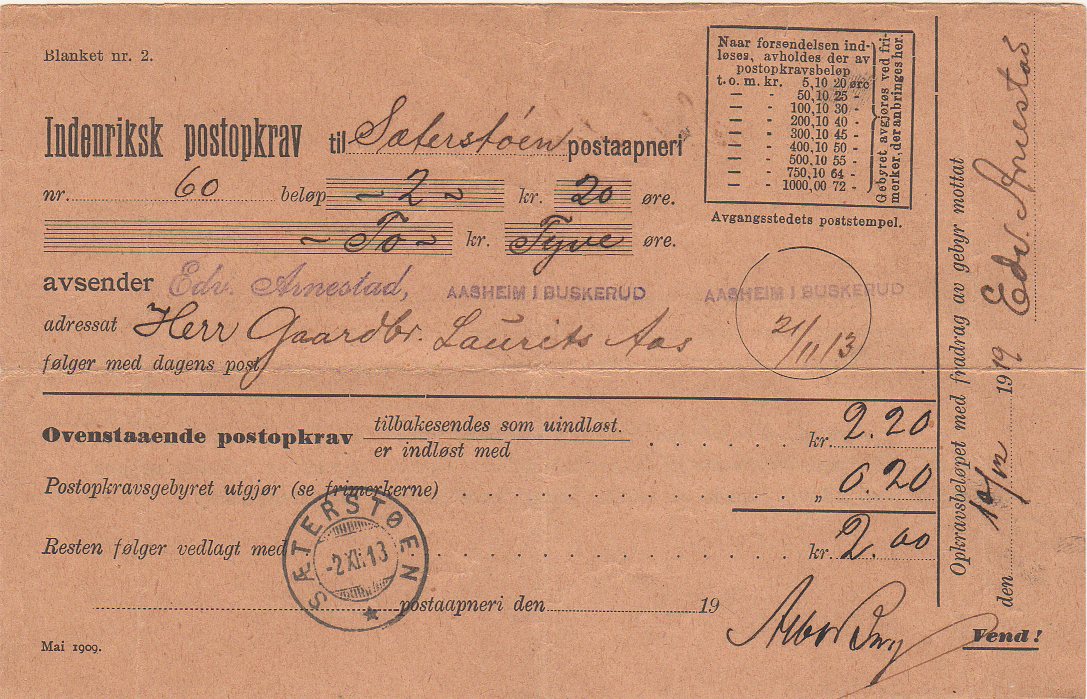 Blanket nr. 2.
Indenriksk postopkrav til Sæterstøen postaapneri
nr. 60 beløp 2 kr. 20 øre.
To kr. Tyve øre.
avsender Edv. Arnestad, AASHEIM I BUSKERUD AASHEIM I BUSKERUD
adressat Herr Gaardbr. Laurits Aas
følger med dagens post
Naar forsendelsen ind-
løses, avholdes der av
postopkravsbeløp
t. o. m. kr. 5,10 20 øre
— - 50,10 25 -
— - 100,10 30 -
— - 200,10 40 -
— - 300,10 45 -
— - 400,10 50 -
— - 500,10 55 -
— - 750,10 64 -
— - 1000,00 72 -
Gebyret avgjøres ved fri-
merker, der anbringes her.
Avgangsstedets poststempel.
21/11 13
Ovenstaaende postopkrav tilbakesendes som uindløst.
er indløst med kr. 2.20
Postopkravsgebyret utgjør (se frimerkerne) „ 0.20
Resten følger vedlagt med kr. 2.00
SÆTERSTØEN
-2 XII 13
postaapneri den 19
Mai 1909.
Vend!
Opkravsbeløpet med fradrag av gebyr mottat
den 19 Edv Arnestad